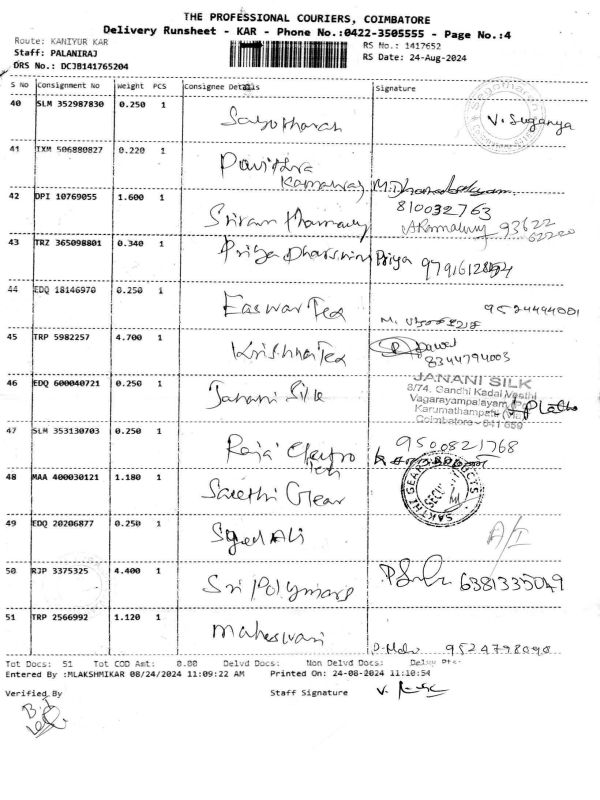 THE PROFESSIONAL COURIERS, COIMBATORE
Delivery Runsheet - KAR - Phone No.:0422-3505555 - Page No.:4
Route: KANIYUR KAR
RS No.: 1417652
Staff: PALANIRAJ
RS Date: 24-Aug-2024
DRS No.: DCJB141765204
S No Consignment No Weight PCS Consignee Details Signature
40 SLM 352987830 0.250 1 V. Suganya
41 IXM 506880827 0.220 1 Pavithra
Kamaraj
810032763
42 DPI 10769055 1.600 1 Sriram
93622
62220
43 TRZ 365098801 0.340 1 Priya Dharshini Priya
44 EDQ 18146970 0.250 1 Easwar Tex 9524494001
45 TRP 5982257 4.700 1 Krishna Tex
8344794003
46 EDQ 600040721 0.250 1 Janani Silk
JANANI SILK
8/74, Gandhi Kadai Veethi
Vagarayampalayam
Karumathampatti
Coimbatore - 641 659
47 SLM 353130703 0.250 1 Raja Electro
Tech
9500821768
48 MAA 400030121 1.180 1 Sakthi Gear
SAKTHI GEAR PRODUCTS
49 EDQ 20206877 0.250 1 Syed Ali
50 RJP 3375325 4.400 1 Sri Polymars 6381335049
51 TRP 2566992 1.120 1 Maheswari
Tot Docs: 51 Tot COD Amt: 0.00 Delvd Docs: Non Delvd Docs:
Entered By :MLAKSHMIKAR 08/24/2024 11:09:22 AM Printed On: 24-08-2024 11:10:54
Verified By Staff Signature